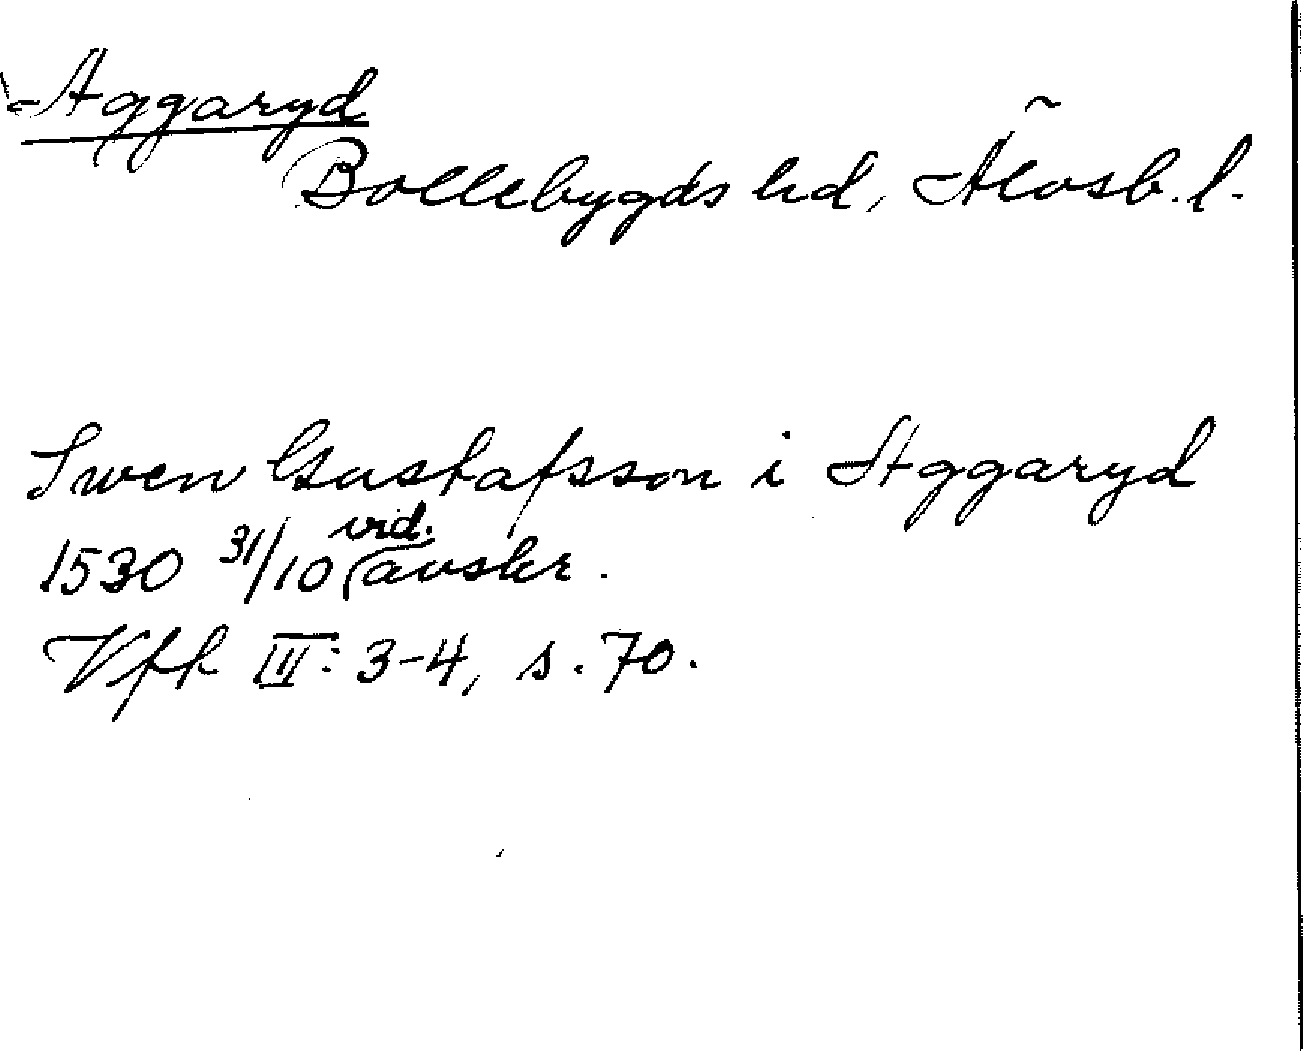 Aggaryd
Bollebygds hd, Älvsb. l.
Swen Gustafsson i Aggaryd
1530 31/10 vid. avskr.
Vfk III: 3-4, s. 70.